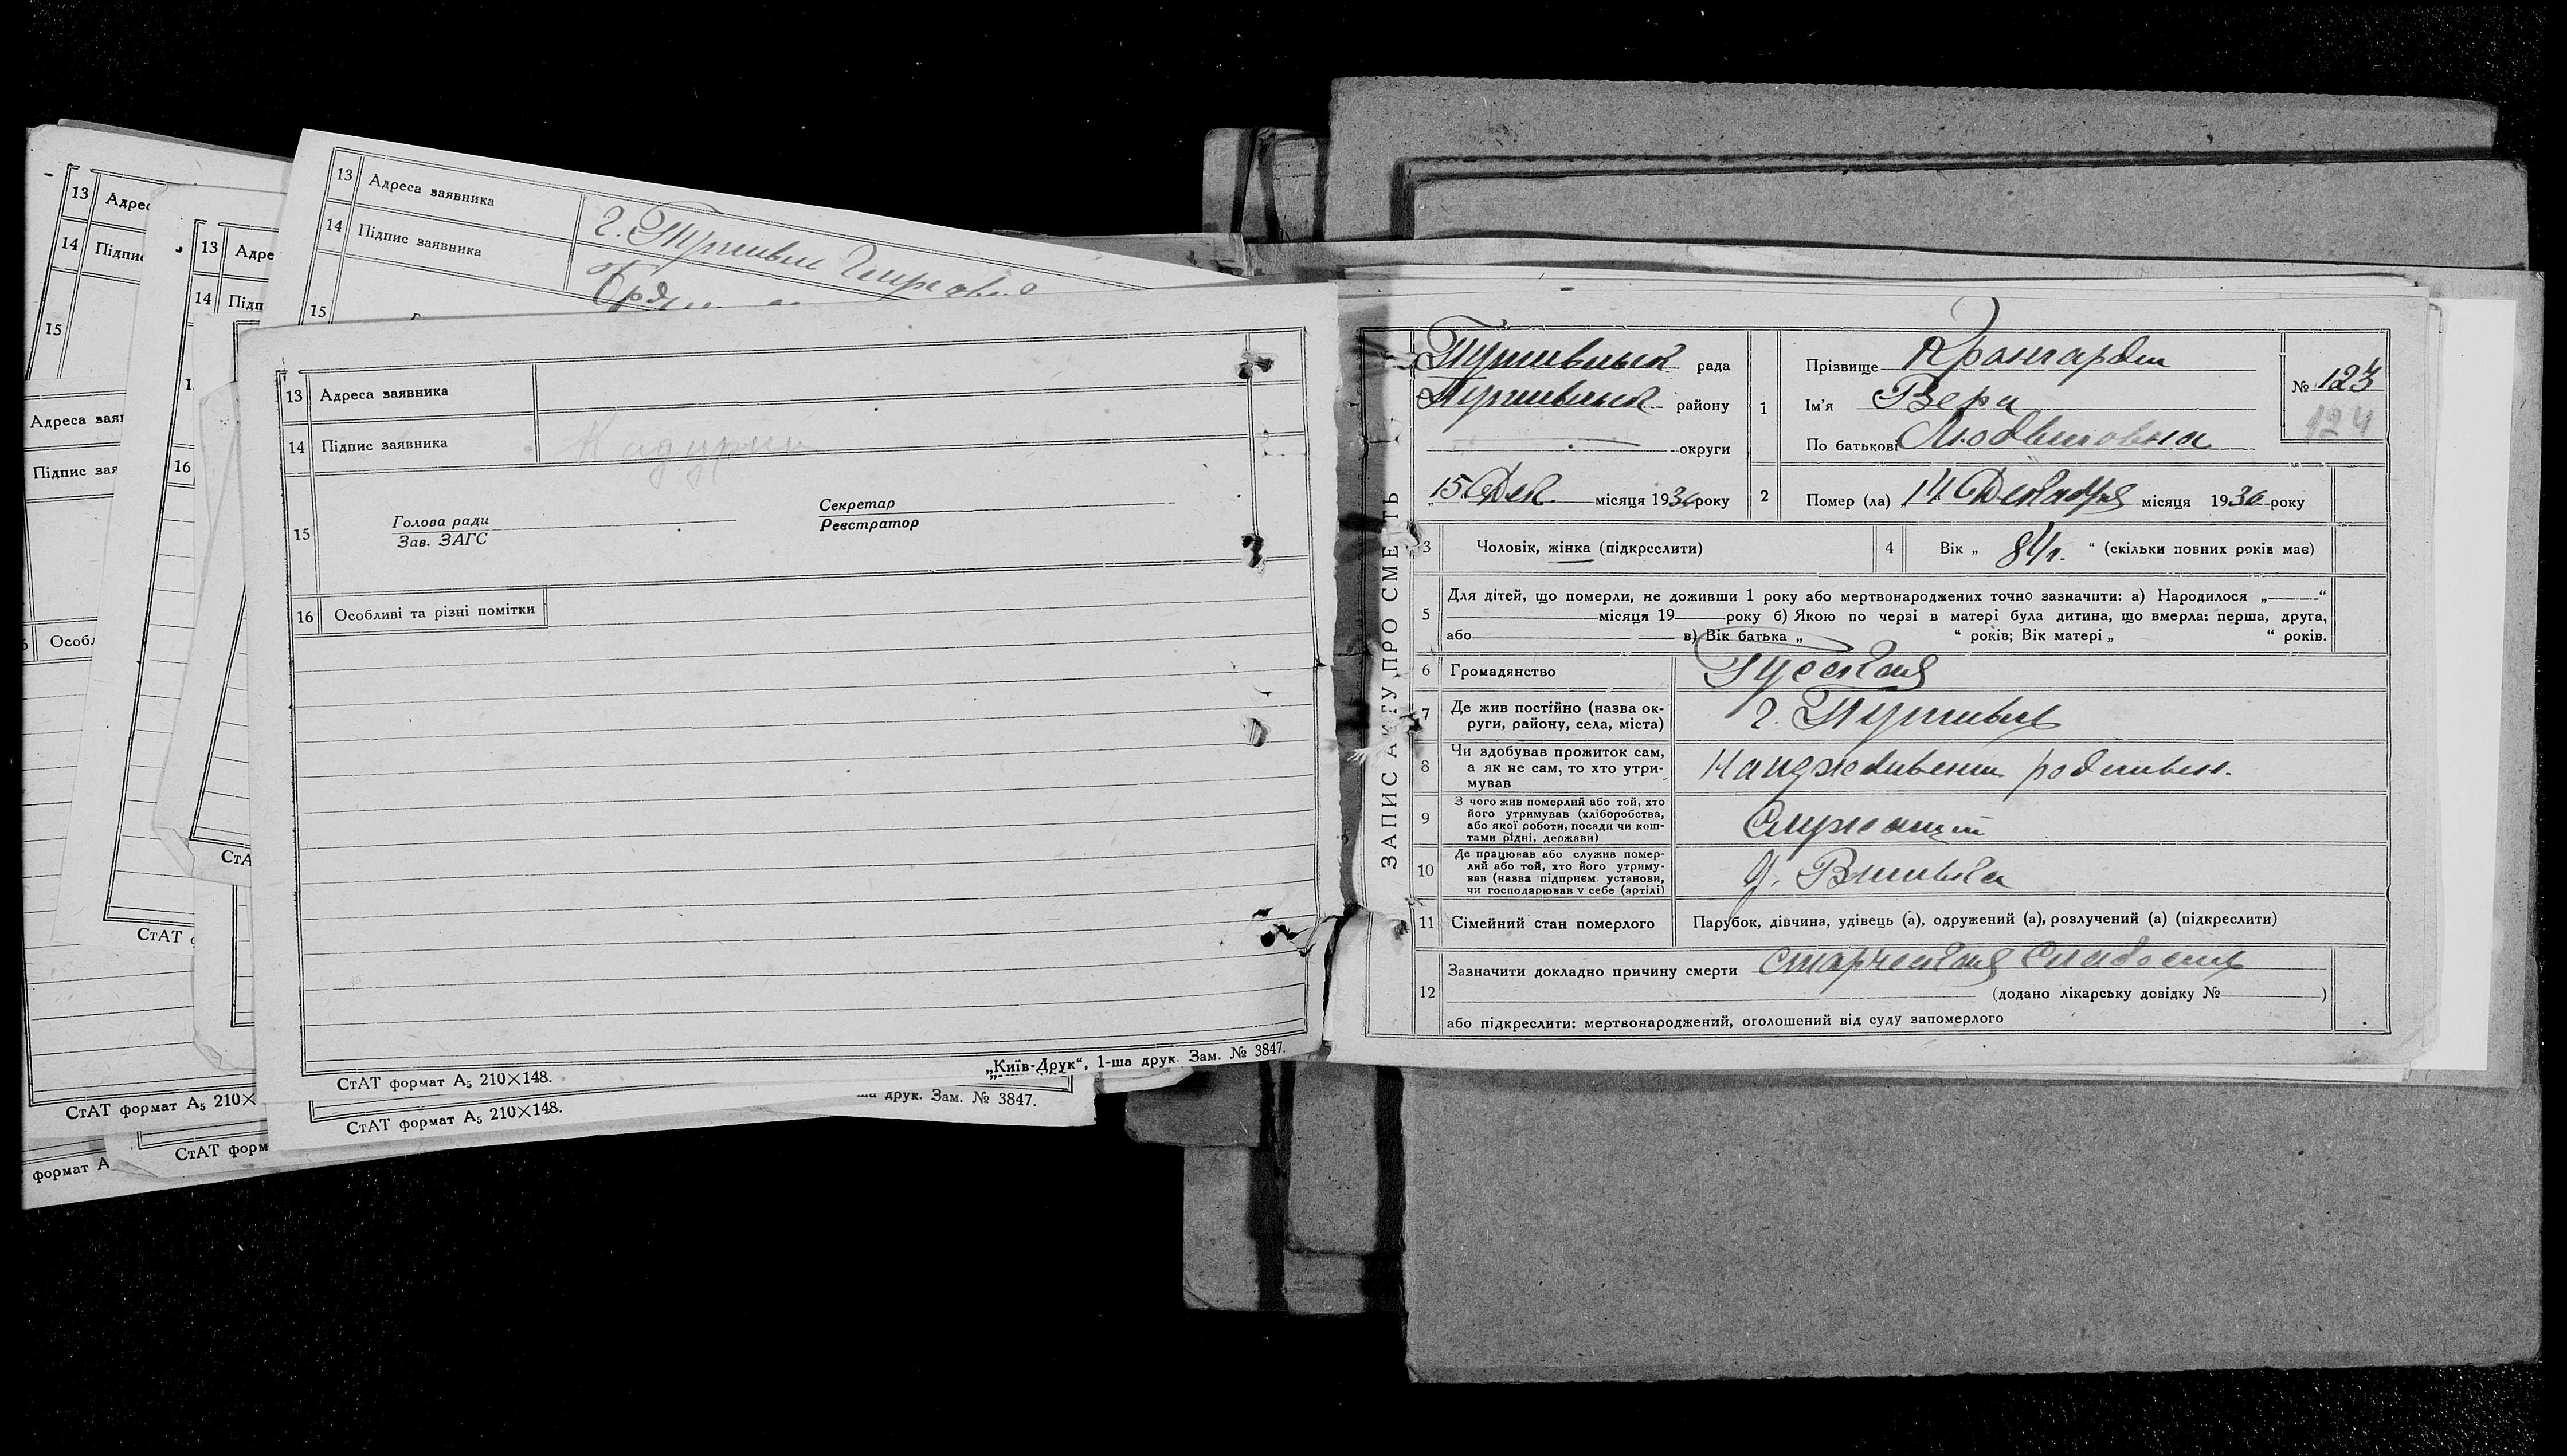 13 Адреса заявника
г. Путивль
14 Підпис заявника
15
13 Адрес
14 Підпи
15
13 Адре
14 Підп
16
Адреса зая
Підпис зая
Особл
СтАТ
СтАТ
СтАТ формат А5 210×
СтАТ форм
формат А
13 Адреса заявника
14 Підпис заявника Кадурин
15 Голова ради Секретар
Зав. ЗАГС Реєстратор
16 Особливі та різні помітки
СтАТ формат А5 210×148. „Київ-Друк“, 1-ша друк. Зам. № 3847.
СтАТ формат А5 210×148. друк. Зам. № 3847.
ЗАПИС АКТУ ПРО СМЕРТЬ
Путивльск рада
Путивльск району
округи
15 Дек. місяця 1930 року
1 Прізвище
Ім'я Вера
По батькові Людвиговна
№ 123
124
2 Помер (ла) „14 Декабря місяця 1930 року
3 Чоловік, жінка (підкреслити) 4 Вік „ 84 л. “ (скільки повних років має)
5 Для дітей, що померли, не доживши 1 року або мертвонароджених точно зазначити: а) Народилося „ “
місяця 19 року б) Якою по черзі в матері була дитина, що вмерла: перша, друга,
або в) Вік батька „ “ років; Вік матері „ “ років.
6 Громадянство Русская
7 Де жив постійно (назва ок-
руги, району, села, міста) г. Путивль
8 Чи здобував прожиток сам,
а як не сам, то хто утри-
мував На иждивении родствен.
9 З чого жив померлий або той, хто
його утримував (хліборобства,
або якої роботи, посади чи кош-
тами рідні, держави) Служащий
10 Де працював або служив помер-
лий або той, хто його утриму-
вав (назва підприєм. установи,
чи господарював у себе (артілі)
11 Сімейний стан померлого Парубок, дівчина, удівець (а), одружений (а), розлучений (а) (підкреслити)
12 Зазначити докладно причину смерти Старческая слабость
(додано лікарську довідку № )
або підкреслити: мертвонароджений, оголошений від суду запомерлого